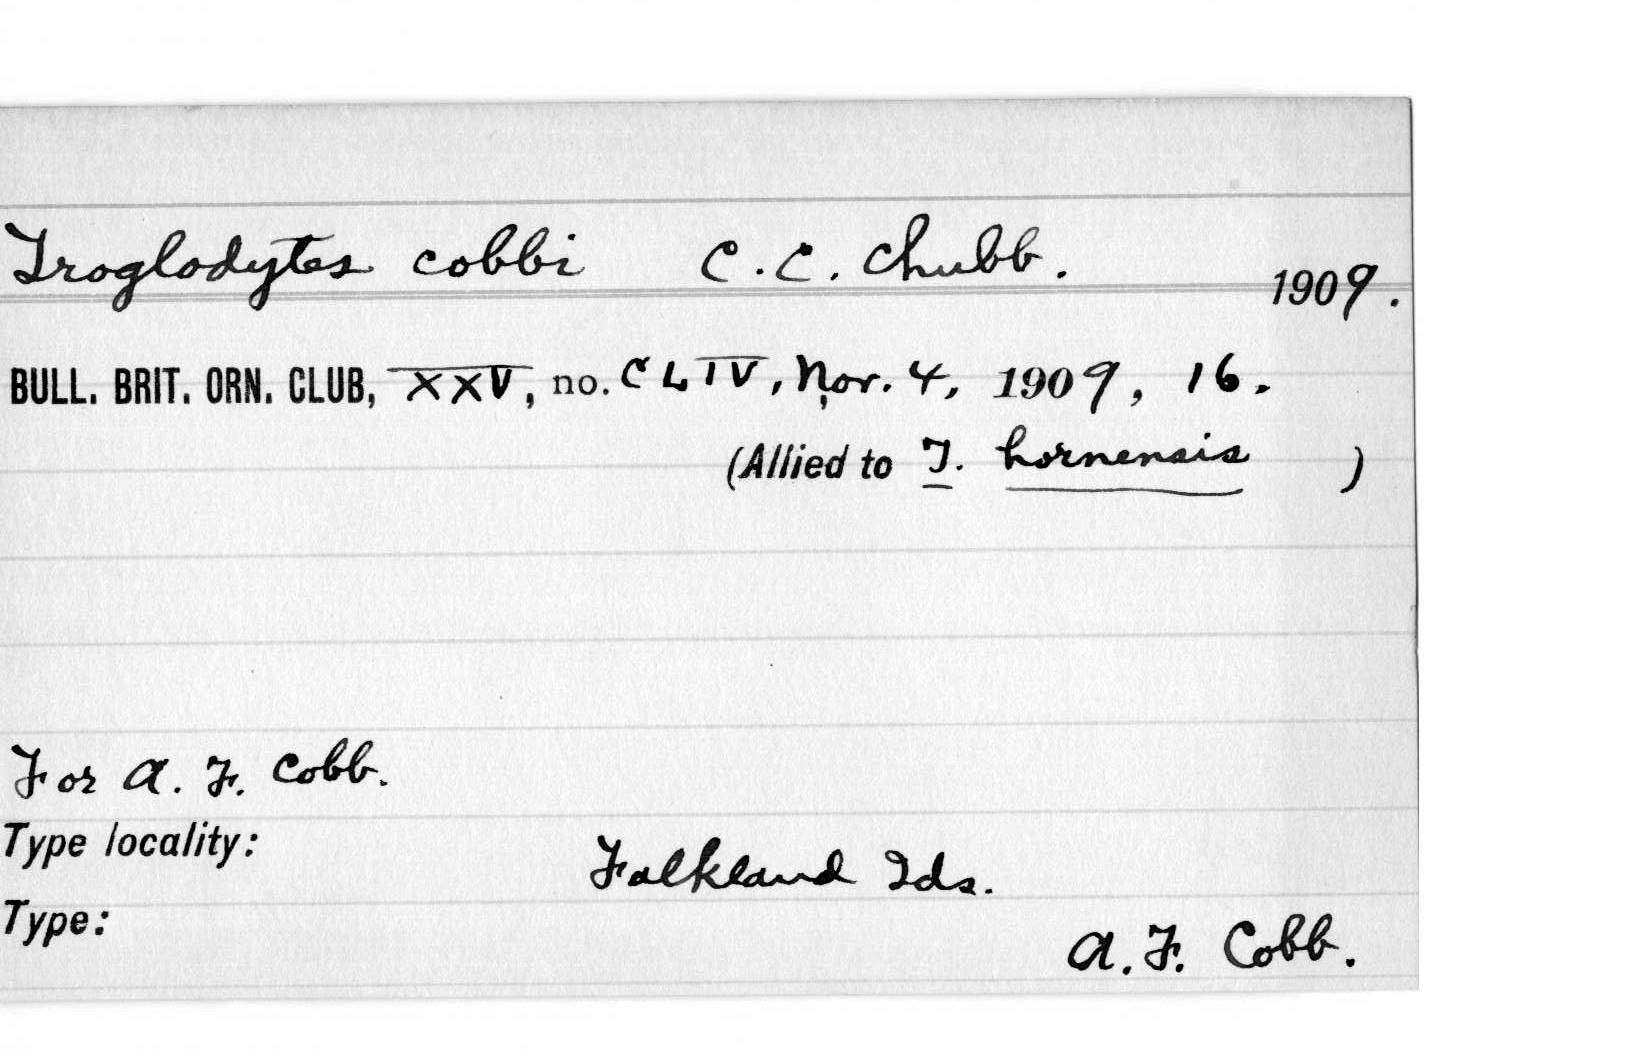 Troglodytes cobbi C.C. Chubb. 1909.
BULL. BRIT. ORN. CLUB, XXV, no. CLIV, Nov. 4, 1909, 16.
(Allied to T. hornensis )
For A. F. Cobb.
Type locality: Falkland Ids.
Type: A. F. Cobb.